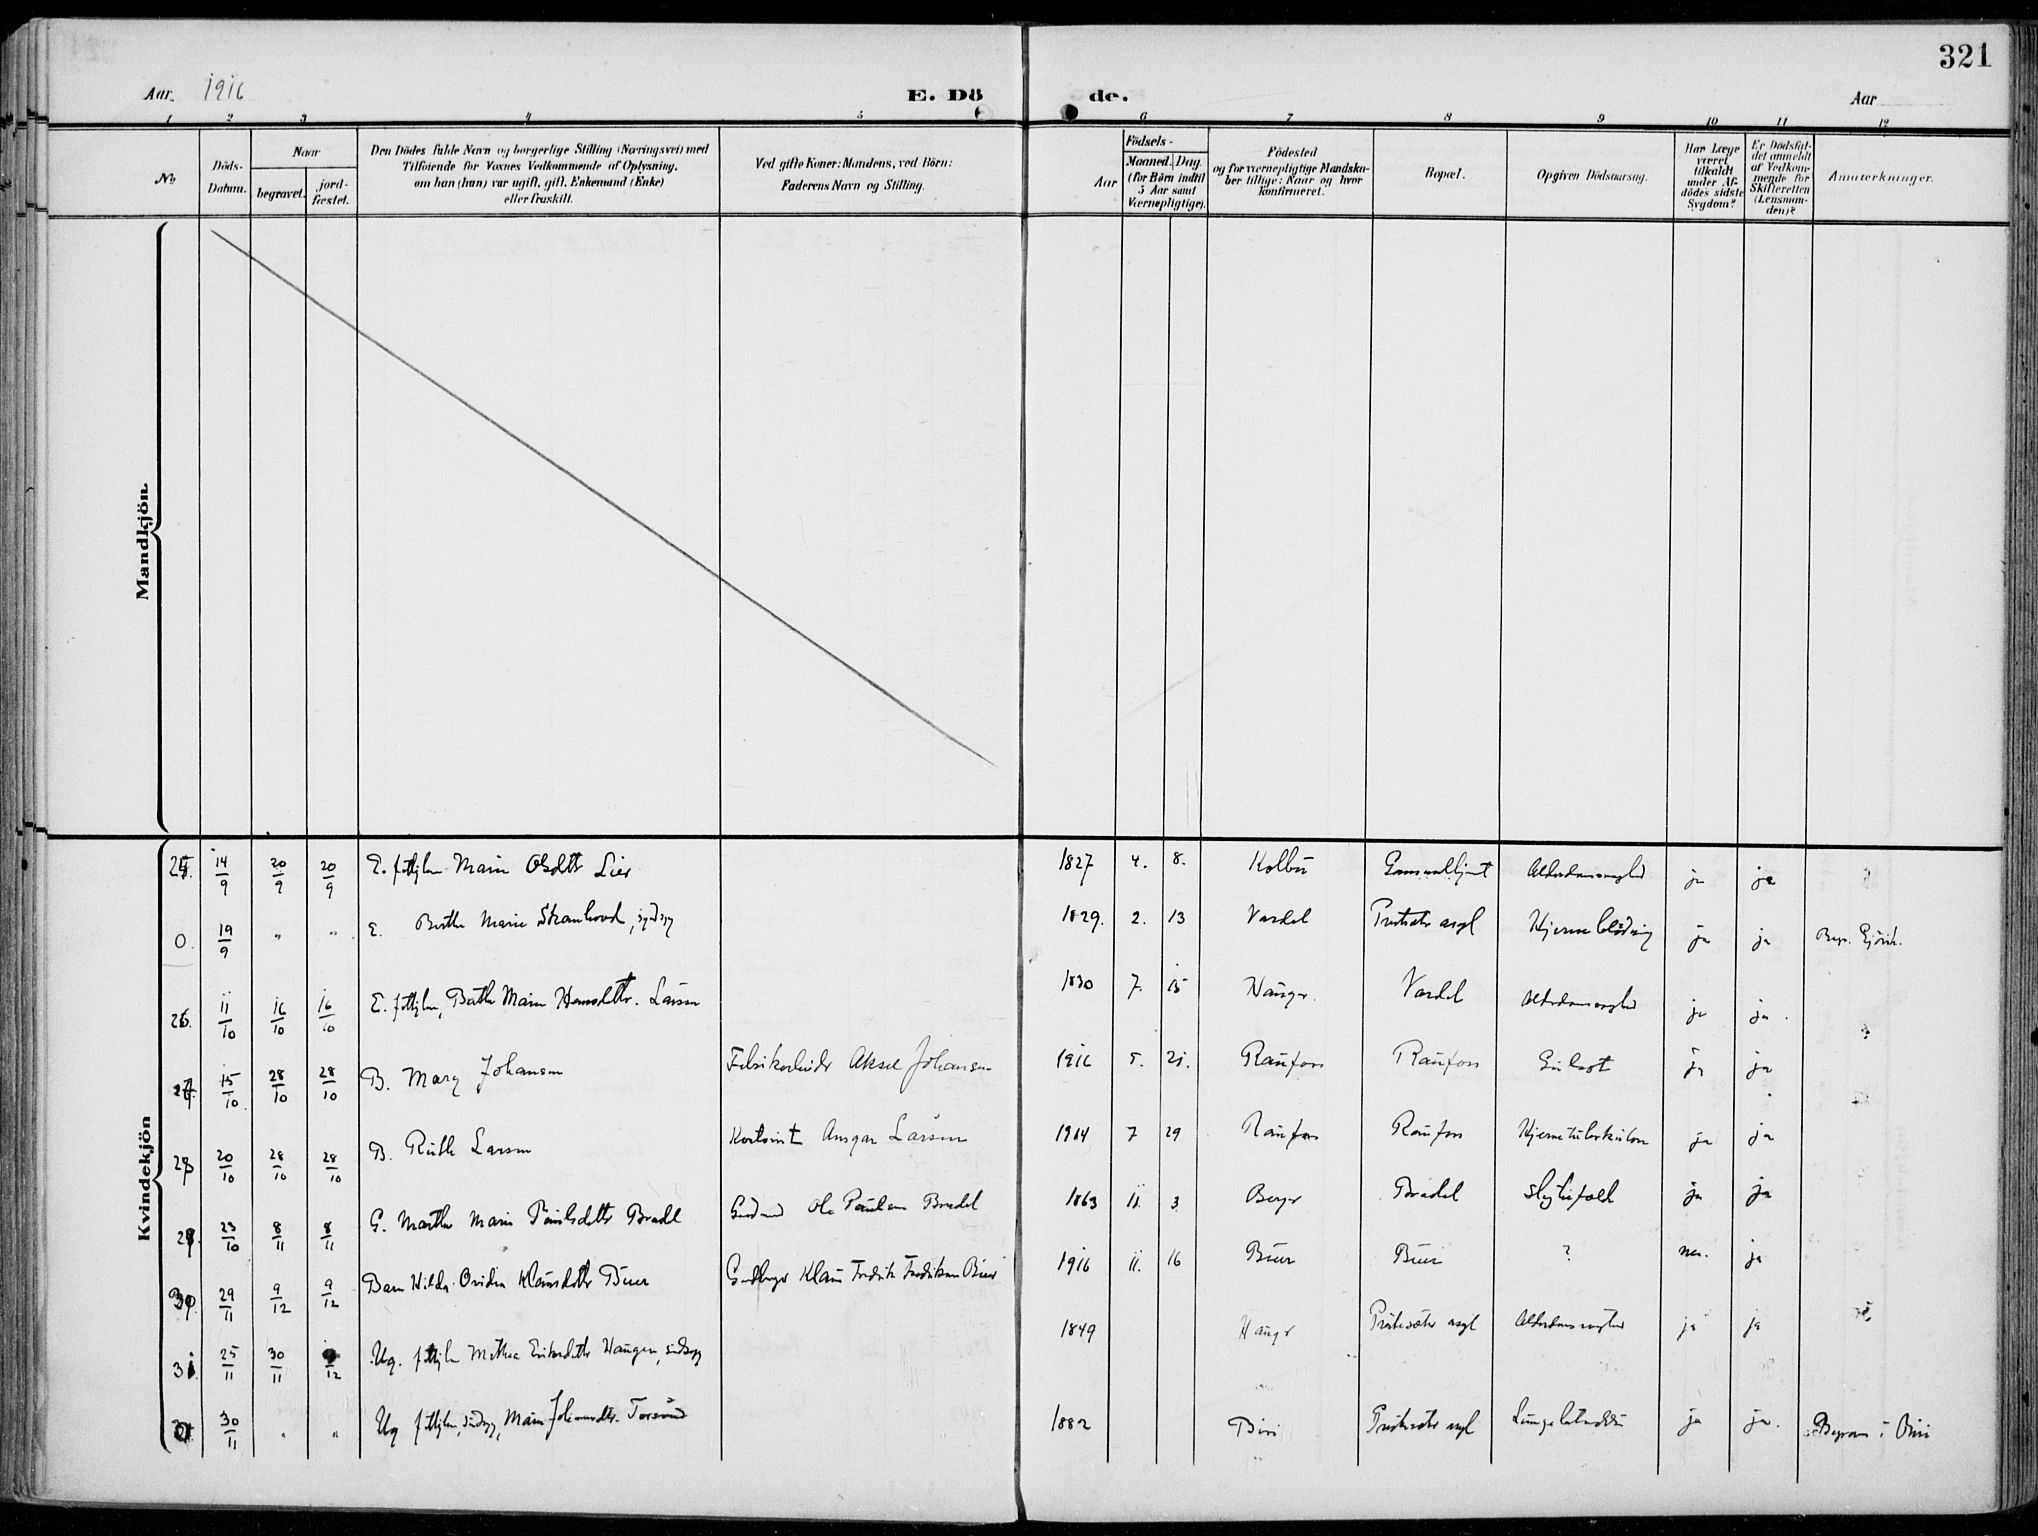 321
Aar. 1916 E. Döde. Aar
1 2 3 4 5 6 7 8 9 10 11 12
No
Döds-Datum.
Naar
begravet.
jord-fæstet.
Den Dödes fulde Navn og borgerlige Stilling (Næringsvei) med
Tilföiende for Voxnes Vedkommende af Oplysning,
om han (hun) var ugift, gift, Enkemand (Enke)
eller fraskilt.
Ved gifte Koner: Mandens, ved Börn:
Faderens Navn og Stilling.
Födsels-
Aar
Maaned. Dag.
(for Börn indtil
5 Aar samt
Værnepligtige).
Födested
og for værnepligtige Mandska-
ber tillige: Naar og hvor
konfirmeret.
Bopæl.
Opgiven Dödsaarsag.
Har Læge
været
tilkaldt
under Af-
dödes sidste
Sygdom?
Er Dödsfal-
det anmeldt
af Vedkom-
mende for
Skifteretten
(Lensman-
den)?
Anmærkninger.
Mandkjön.
Kvindekjön
25. 14/9 20/9 20/9 E. Marie Olsdtr Lier 1827 4. 8. Kolbu Alderdomssvaghed ja ja
0. 19/9 " " E. Berthe Marie 1829. 2. 13 Vardal Hjerneblödning ja ja Begr. Gjövik.
26. 11/10 16/10 16/10 E. Berthe Marie Hansdtr. Larsen 1830 7. 15 Hauger. Vardal Alderdomssvaghed ja ja.
27. 15/10 28/10 28/10 B. Mary Johansen Fabrikarbeider Aksel Johansen 1916 5. 21. Raufoss Raufoss ja ja
28 20/10 28/10 28/10 B. Ruth Larsen Kontorist Ansgar Larsen 1914 7 29 Raufoss Raufoss Hjernetuberkulose ja ja
29. 23/10 8/11 8/11 G. Marthe Marie Paulsdtr Bradal Gaardmand Ole Paulsen Bradal 1863 11. 3 Berger Bradal Slagtilfælde ja ja
30. 29/11 9/12 9/12 Barn Hilda Ovidia Klausdtr Buer Gaardbruger Klaus Fredrik Fredriksen Buer 1916 11. 16 Buer Buer ? nei. ja
31 25/11 30/11 /12 Ug. Mathea Eriksdtr Haugen, sindssyg 1849 Hauger Alderdomssvaghed ja ja
30/11 " " Ug sindssyg, Marie 1882 Biri ja ja. Begraves i Biri